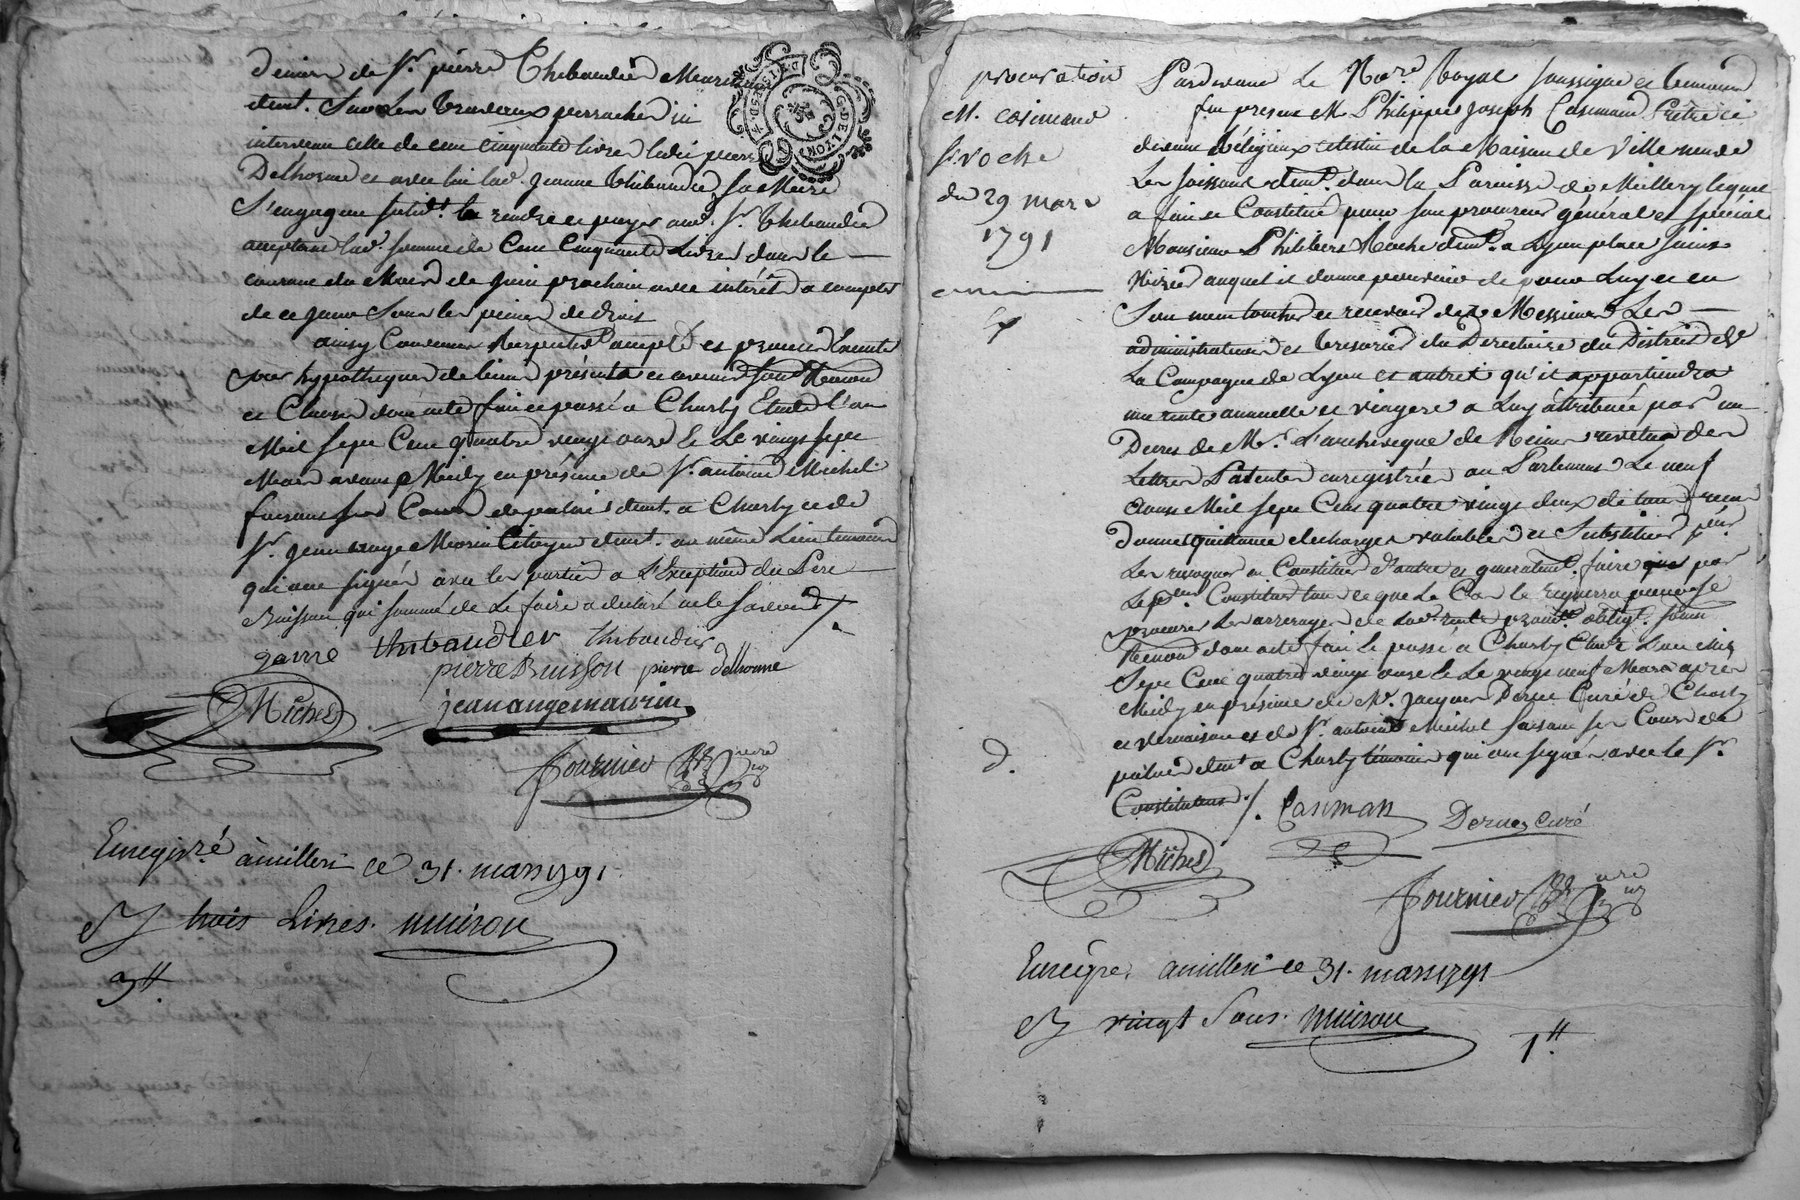 deniers de Sr. pierre Thibaudier
demt. Sur Les Travaux perrache ici
intervenu celle de cent cinquante livres ledit pierre
Delhorme et avec lui lad. jeanne Thibaudier Sa Mere
S'engagent solidt. la rendre et payer aud. Sr. Thibaudier
acceptant lad. somme de Cent Cinquante Livres dans le
courant du Mois de juin prochain avec intérêt a compter
de ce jour Sous les peines de droit
ainsy Convenu accepté et promis Executer
par hypotheque de biens présents et avenir
et Clauses dont acte fait et passé a Charly Etude L'an
Mil Sept Cent quatre vingt onze & Le vingt sept
Mars avant Midy en présence de Sr. antoine Michel
faisant ses Cours de pratique demt. a Charly et de
Sr. jean ange Morin Citoyen demt. au même Lieu temoins
qui ont signés avec les parties a L'Exception du Pere
Buisson qui sommé de Le faire a declaré ne le savoir /.
thibaudier thibaudier
pierre Buisson pierre delhorme
Michel jean ange maurin
fournier
Enregistré à millery ce 31. mars 1791
trois Livres. muiron
3tt
G. DE LYON
procuration
M. casimand
Sr. roche
du 29 mars
1791
Pardevant Le Nore. Royal soussigné et temoins
fut présent Mr. Philippe joseph Casimand Prêtre ci
devant Réligieux celestin de la Maison de Ville neuve
Les soissons demt. dans la Paroisse de Millery lequel
a fait et Constitué pour son procureur général et spécial
Monsieur Philibert Roche demt. a Lyon place
auquel il donne pouvoir de pour Luy et en
Son nom toucher et recevoir de Messieurs Les
administrateurs et tresorier du Directoire du District de
La Campagne de Lyon et autres qu'il appartiendra
une rente annuelle et viagere a Luy attribuée par un
Decret de Mr. L'archeveque de Reims revetu des
Lettres Patentes enregistrées au Parlement Le neuf
Mil Sept Cent quatre vingt deux de tout recu
donner quittance décharges valables et Substituer
Les revoquer en Constituer d'autre et généralemt. faire que par
Constituer tout ce que Le Cas le Requerra pour se
procurer Les arrerages de lad. rente promt. obligt.
Renonc. dont acte fait & passé a Charly Etude L'an Mil
Sept Cent quatre vingt onze & Le vingt neuf Mars apres
Midy en présence de Mr. jacques Dernes Curé de Charly
et Vernaison et de Sr. antoine Michel faisant ses Cours de
demt. a Charly témoins qui ont signés avec le Sr.
Constituant /. Casiman Dernes curé
Michel
fournier
d.
Enregré. a millery ce 31. mars 1791
vingt Sous. muiron
1tt